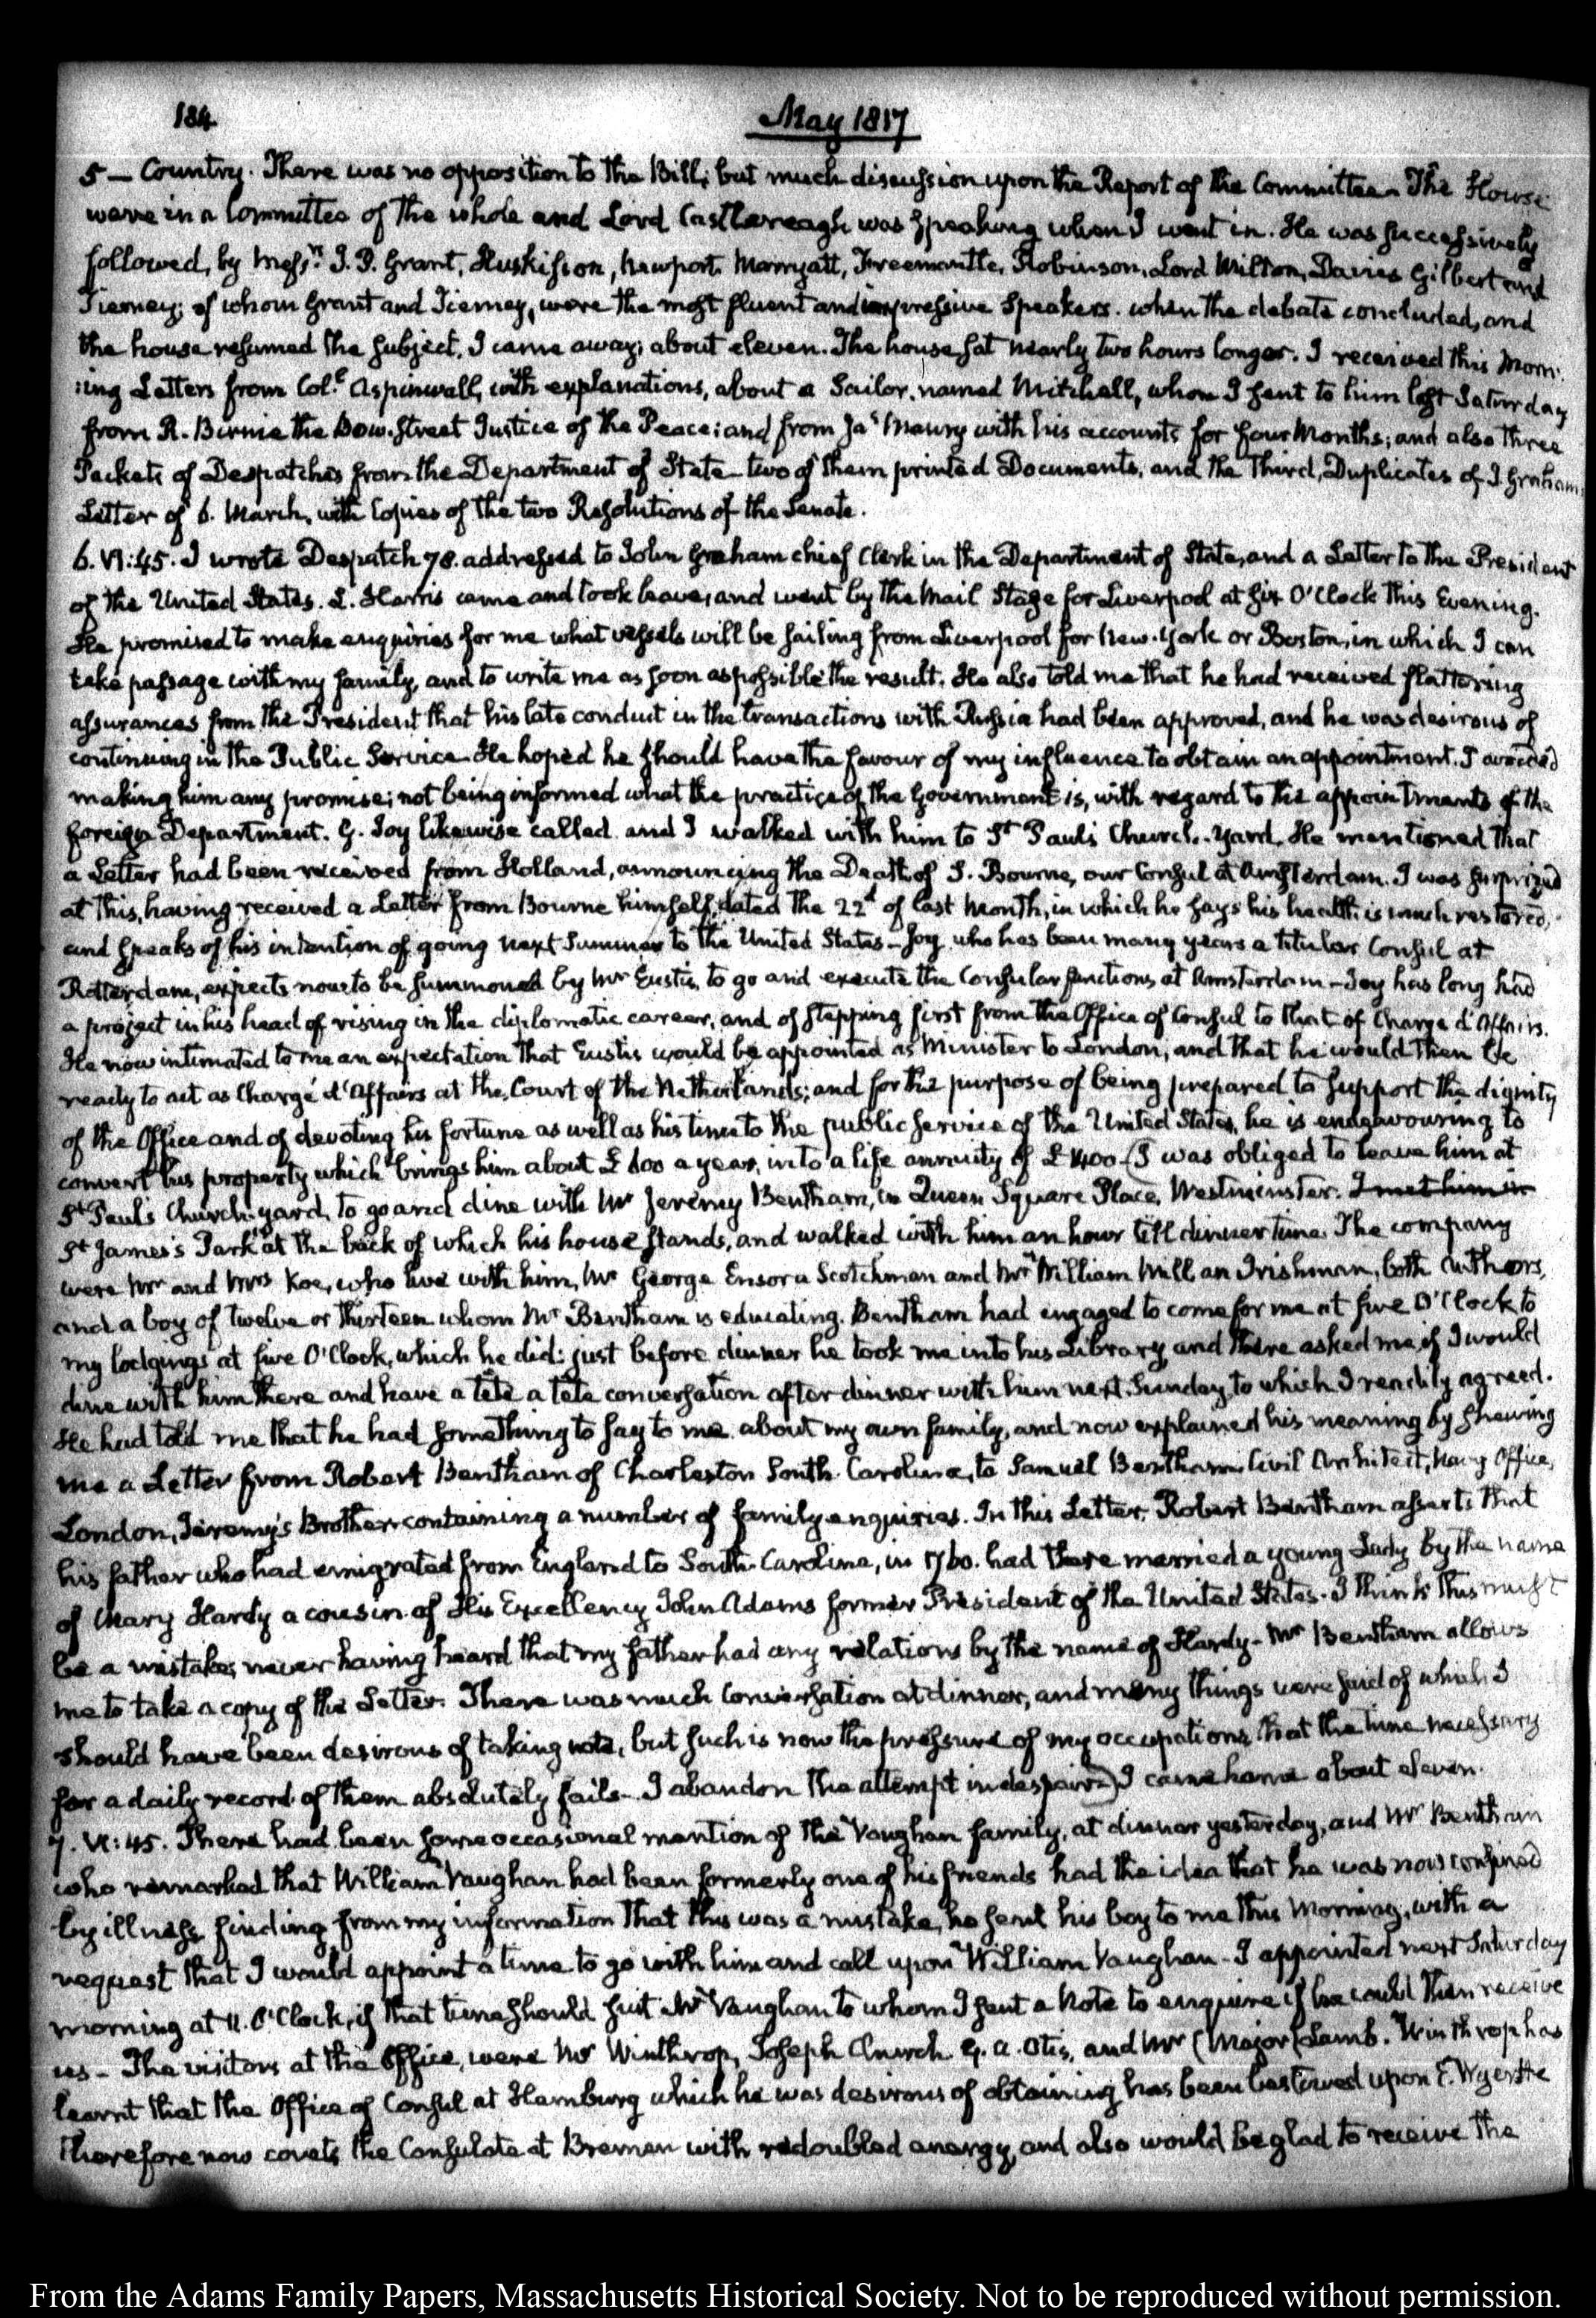 184
May 1817
5 — Country. There was no opposition to the Bill; but much discussion upon the Report of the Committee. The House
were in a Committee of the whole and Lord Castlereagh was speaking when I went in. He was successively
followed, by Mess.rs J. P. Grant, Huskisson, Newport, Marryatt, Freemantle, Robinson, Lord Milton, Davies Gilbert and
Tierney; of whom Grant and Tierney, were the most fluent and impressive speakers. when the debate concluded, and
the house resumed the subject, I came away; about eleven. The house sat nearly two hours longer. I received this Morn:
:ing Letters from Col.l Aspinwall, with explanations, about a Sailor, named Mitchell, whom I sent to him last Saturday
from R. Birnie the Bow-Street Justice of the Peace; and from Ja.s Maury with his accounts for four Months; and also three
Packets of Despatches from the Department of State—two of them printed Documents, and the Third, Duplicates of J. Graham's
Letter of 6. March, with Copies of the two Resolutions of the Senate.
6. VI:45. I wrote Despatch 78. addressed to John Graham chief Clerk in the Department of State, and a Letter to the President
of the United States. L. Harris came and took leave, and went by the Mail Stage for Liverpool at six O'Clock this Evening.
He promised to make enquiries for me what vessels will be sailing from Liverpool for New-York or Boston, in which I can
take passage with my family, and to write me as soon as possible the result. He also told me that he had received flattering
assurances from the President that his late conduct in the transactions with Russia had been approved, and he was desirous of
continuing in the Public Service. He hoped he should have the favour of my influence to obtain an appointment. I avoided
making him any promise; not being informed what the practice of the Government is, with regard to the appointments of the
foreign Department. G. Joy likewise called and I walked with him to St Paul's Church-Yard. He mentioned that
a Letter had been received from Holland, announcing the Death of S. Bourne, our Consul at Amsterdam. I was surprized
at this, having received a Letter from Bourne himself, dated the 22d of last Month, in which he says his health is much restored;
and speaks of his intention of going next Summer to the United States—Joy who has been many years a titular Consul at
Rotterdam, expects now to be summoned by Mr Eustis, to go and execute the Consular functions at Amsterdam—Joy has long had
a project in his head of rising in the diplomatic career, and of stepping first from the Office of Consul to that of Chargé d'Affairs.
He now intimated to me an expectation that Eustis would be appointed as Minister to London, and that he would then be
ready to act as Chargé d'Affairs at the Court of the Netherlands; and for the purpose of being prepared to support the dignity
of the Office and of devoting his fortune as well as his time to the public service of the United States, he is endeavouring to
convert his property which brings him about £ 600 a year, into a life annuity of £ 1400—(I was obliged to leave him at
St Paul's Church-yard, to go and dine with Mr Jeremy Bentham, in Queen Square Place, Westminster. I met him in
St James's Park at the back of which his house stands, and walked with him an hour till dinner time. The company
were Mr and Mrs Koe, who live with him, Mr George Ensor a Scotchman and Mr William Mill an Irishman, both Authors,
and a boy of twelve or thirteen whom Mr Bentham is educating. Bentham had engaged to come for me at five O'Clock to
my lodgings at five O'Clock, which he did: just before dinner he took me into his Library, and there asked me, if I would
dine with him there and have a tête a tête conversation after dinner with him next Sunday, to which I readily agreed.
He had told me that he had something to say to me about my own family, and now explained his meaning by shewing
me a Letter from Robert Bentham of Charleston South Carolina, to Samuel Bentham, Civil Architect, Navy Office,
London, Jeremy's Brother containing a number of family enquiries. In this Letter, Robert Bentham asserts that
his father who had emigrated from England to South-Carolina, in 1760. had there married a young Lady by the name
of Mary Hardy a cousin of His Excellency John Adams former President of the United States. I think this must
be a mistake; never having heard that my father had any relations by the name of Hardy—Mr Bentham allows
me to take a copy of the Letter. There was much Conversation at dinner, and many things were said of which I
should have been desirous of taking note, but such is now the pressure of my occupations that the time necessary
for a daily record of them absolutely fails—I abandon the attempt in despair.) I came home about eleven.
7. VI:45. There had been some occasional mention of the Vaughan family, at dinner yesterday, and Mr Bentham
who remarked that William Vaughan had been formerly one of his friends had the idea that he was now confined
by illness, finding from my information that this was a mistake, he sent his boy to me this Morning, with a
request that I would appoint a time to go with him and call upon William Vaughan—I appointed next Saturday
morning at 11. O'Clock, if that time should suit Mr Vaughan to whom I sent a Note to enquire if he could then receive
us—The visitors at the Office, were Mr Winthrop, Joseph Church, G. A. Otis, and Mr (Major) Lamb. Winthrop has
learnt that the Office of Consul at Hamburg which he was desirous of obtaining has been bestowed upon E. Wyer. He
therefore now covets the Consulate at Bremen with redoubled energy, and also would be glad to receive the
From the Adams Family Papers, Massachusetts Historical Society. Not to be reproduced without permission.